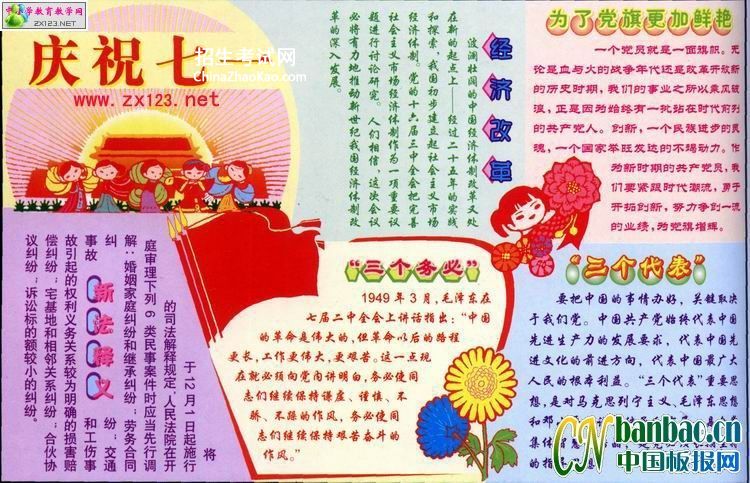 中小学教育教学网
ZX123.NET
庆祝七
www.zx123.net
招生考试网
ChinaZhaoKao.com
经济改革
波澜壮阔的中国经济体制改革又处
在新的起点上——经过二十五年的实践
和探索，我国初步建立起社会主义市场
经济体制。党的十六届三中全会把完善
社会主义市场经济体制作为一项重要议
题进行讨论研究。人们相信，这次会议
必将有力地推动新世纪我国经济体制改
革的深入发展。
为了党旗更加鲜艳
一个党员就是一面旗帜。无
论是血与火的战争年代还是改革开放新
的历史时期，我们的事业之所以乘风破
浪，正是因为始终有一批站在时代前列
的共产党人。创新，一个民族进步的灵
魂，一个国家举旺发达的不竭动力。作
为新时期的共产党员，我
们要紧跟时代潮流，勇于
开拓创新，努力争创一流
的业绩，为党旗增辉。
新法释义
将
于12月1日起施行
的司法解释规定，人民法院在开
庭审理下列6类民事案件时应当先行调
解：婚姻家庭纠纷和继承纠纷；劳务合同
纠纷；交通
事故和工伤事
故引起的权利义务关系较为明确的损害赔
偿纠纷；宅基地和相邻关系纠纷；合伙协
议纠纷；诉讼标的额较小的纠纷。
“三个务必”
1949年3月，毛泽东在
七届二中全会上讲话指出：“中国
的革命是伟大的，但革命以后的路程
更长，工作更伟大，更艰苦。这一点现
在就必须向党内讲明白，务必使同
志们继续保持谦虚、谨慎、不
骄、不躁的作风，务必使同
志们继续保持艰苦奋斗的
作风。”
“三个代表”
要把中国的事情办好，关键取决
于我们党。中国共产党始终代表中国
先进生产力的发展要求，代表中国先
进文化的前进方向，代表中国最广大
人民的根本利益。“三个代表”重要思
想，是对马克思列宁主义、毛泽东思想
和邓
集体智
的指导思想。
CN banbao.cn
中国板报网